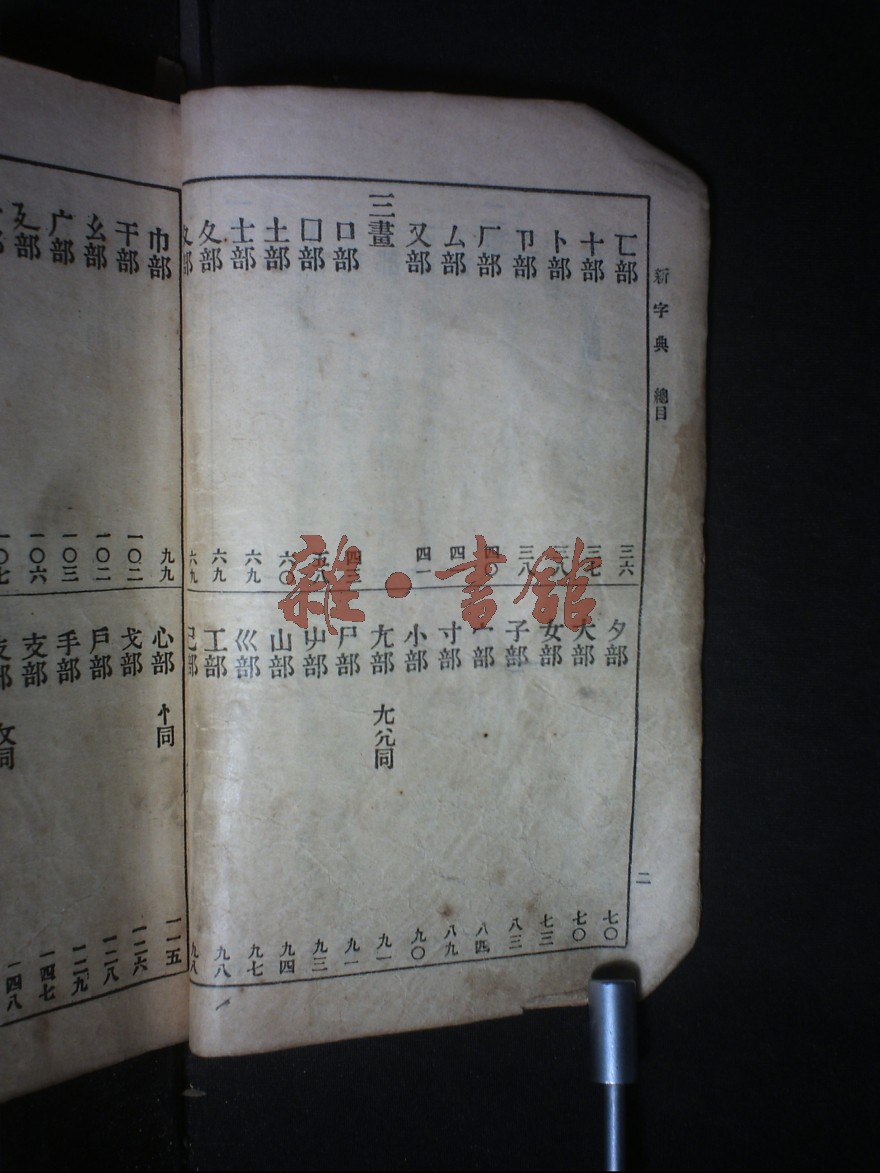 新字典 總目
二
匸部 三六
十部 三七
卜部 三八
卩部 三八
厂部 四〇
厶部 四一
又部 四一
三畫
口部 四三
囗部 五八
土部 六〇
士部 六九
夂部 六九
夊部 六九
夕部 七〇
大部 七〇
女部 七三
子部 八三
宀部 八四
寸部 八九
小部 九〇
尢部 尣兊同 九一
尸部 九一
屮部 九三
山部 九四
巛部 九七
工部 九八
己部 九八
巾部 九九
干部 一〇二
幺部 一〇二
广部 一〇三
廴部 一〇六
一〇七
心部 忄同 一一五
戈部 一二六
戶部 一二八
手部 一二九
支部 一四七
攴部 攵同 一四八
雜·書館